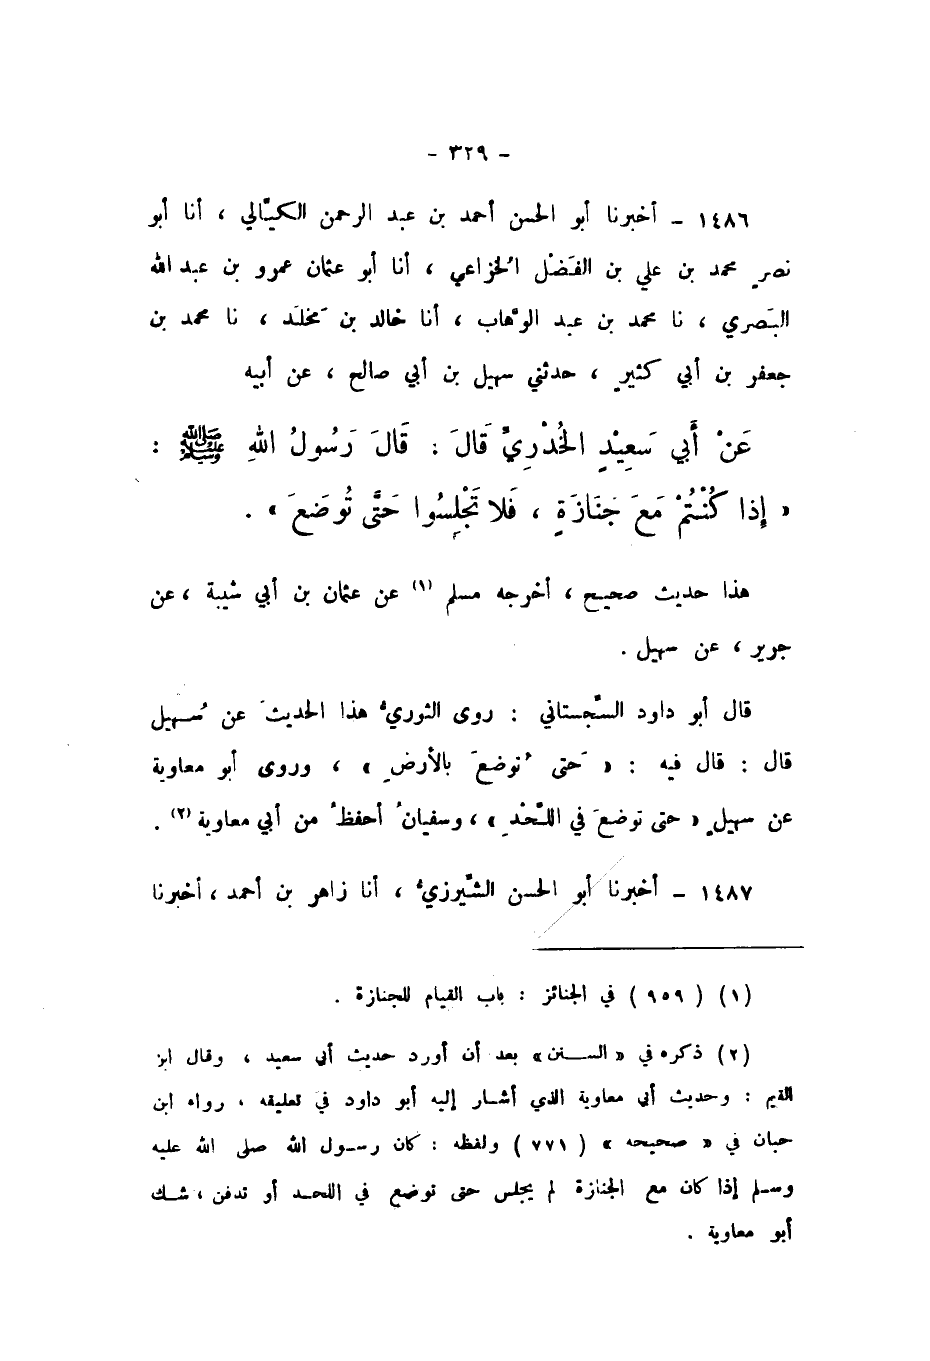 - ٣٢٩ -
١٤٨٦ - أخبرنا أبو الحسن أحمد بن عبد الرحمن الكيَّالي ، أنا أبو
نصرٍ محمد بن علي بن الفَضْل الخُزاعي ، أنا أبو عثمان عمرو بن عبد الله
البَصري ، نا محمد بن عبد الوهَّاب ، أنا خالد بن مَخلَد ، نا محمد بن
جعفر بن أبي كثيرٍ ، حدثني سهيل بن أبي صالح ، عن أبيه
عَنْ أَبي سَعِيْدٍ الخُدْرِيِّ قَالَ : قَالَ رَسُولُ اللهِ ﷺ :
« إِذا كُنْتُمْ مَعَ جَنَازَةٍ ، فَلا تَجْلِسُوا حَتَّى تُوضَعَ » .
هذا حديث صحيح ، أخرجه مسلم (١) عن عثمان بن أبي شيبة ، عن
جرير ، عن سهيل .
قال أبو داود السِّجستاني : روى الثوريُّ هذا الحديثَ عن سُهيل
قال : قال فيه : « حَتى تُوضعَ بالأرضِ » ، وروى أبو معاوية
عن سهيلٍ « حتى توضعَ في اللَّحْدِ » ، وسفيانُ أحفظُ من أبي معاوية (٢) .
١٤٨٧ - أخبرنا أبو الحسن الشِّيرزيُّ ، أنا زاهر بن أحمد ، أخبرنا
(١) ( ٩٥٩ ) في الجنائز : باب القيام للجنازة .
(٢) ذكره في « السنن » بعد أن أورد حديث أبي سعيد ، وقال ابن
القيم : وحديث أبي معاوية الذي أشار إليه أبو داود في تعليقه ، رواه ابن
حبان في « صحيحه » ( ٧٧١ ) ولفظه : كان رسول الله صلى الله عليه
وسلم إذا كان مع الجنازة لم يجلس حتى توضع في اللحد أو تدفن ، شك
أبو معاوية .